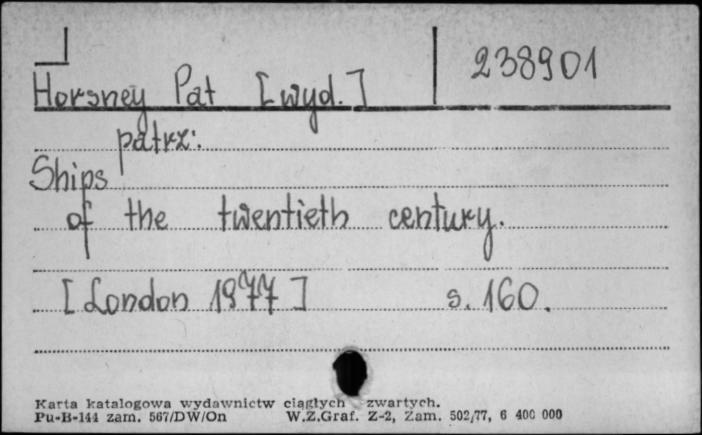 238901
Horsney Pat [wyd.]
patrz:
Ships
of the twentieth century.
[London 1977] s. 160.
Karta katalogowa wydawnictw ciągłych zwartych.
Pu-B-144 zam. 567/DW/On W.Z.Graf. Z-2, Zam. 502/77, 6 400 000